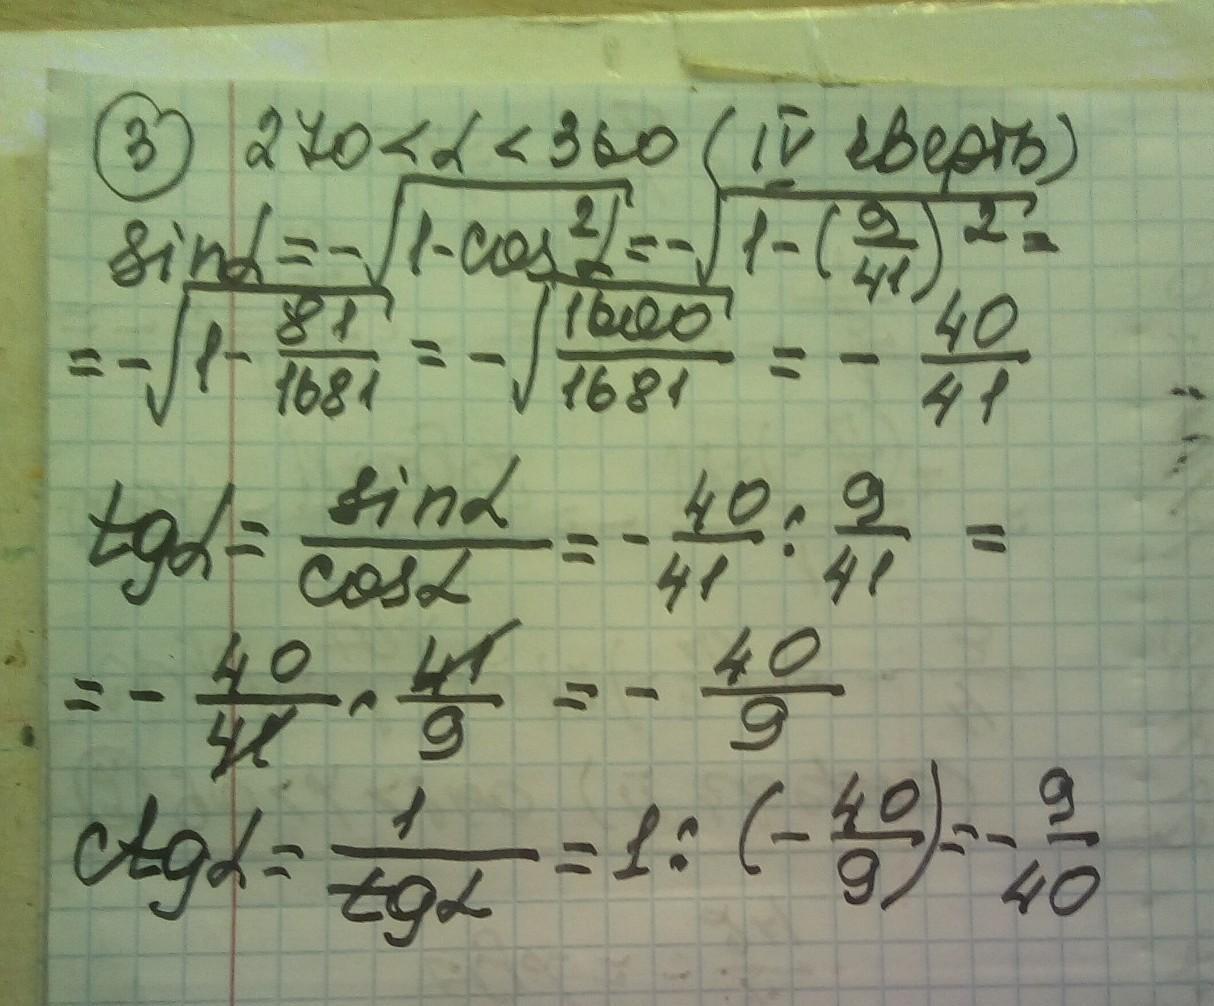 ③ 270 < α < 360 (IV чверть)
sinα = -√(1-cos²α) = -√(1-(9/41)²) =
= -√(1-81/1681) = -√(1600/1681) = - 40/41
tgα = sinα/cosα = - 40/41 : 9/41 =
= - 40/41 · 41/9 = - 40/9
ctgα = 1/tgα = 1 : (- 40/9) = - 9/40